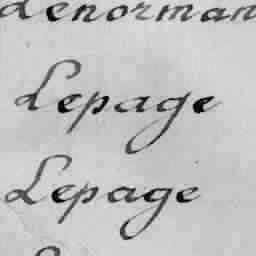 Lenormand
Lepage
Lepage